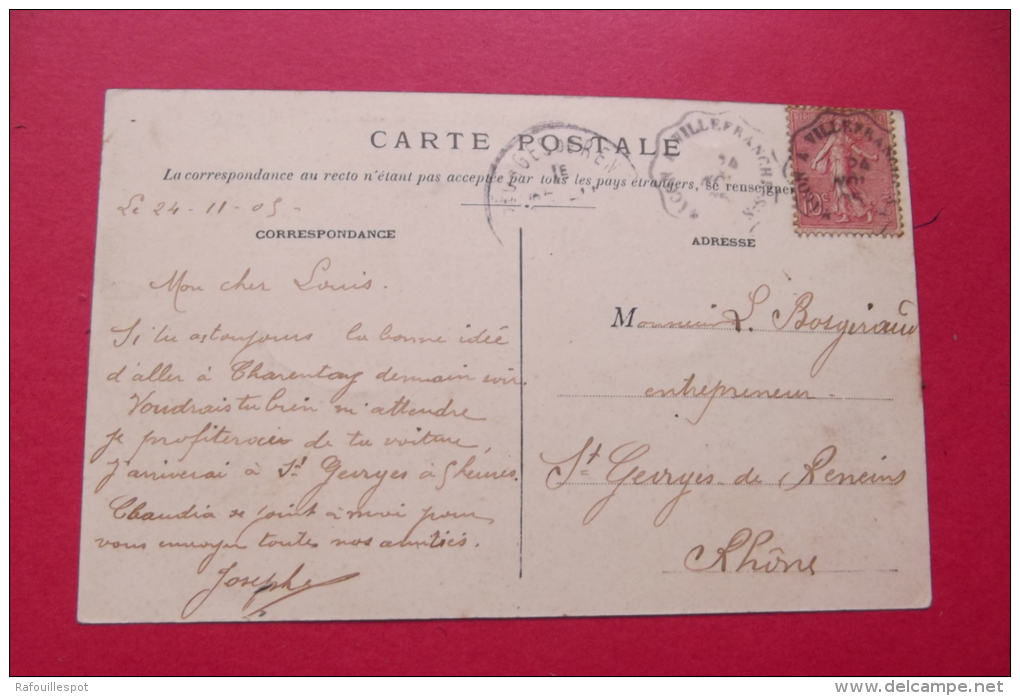 CARTE POSTALE
La correspondance au recto n'étant pas acceptée par tous les pays étrangers, se renseigner
Le 24-11-05-
CORRESPONDANCE
ADRESSE
Mon cher Louis.
Si tu as toujours la bonne idée
d'aller à Charentay demain soir.
Voudrais tu bien m'attendre
je profiterais de ta voiture,
J'arriverai à St Georges à 5 heures.
Claudia se joint à moi pour
vous envoyer toutes nos amitiés.
Josephe
Monsieur L. Bosgiraud
entrepreneur.
St Georges de Reneins
Rhône
A VILLEFRANCHE-S-S
24
NOV
10c
A VILLEFRANCHE
24
NOV
Rafouillespot
delcampe.net